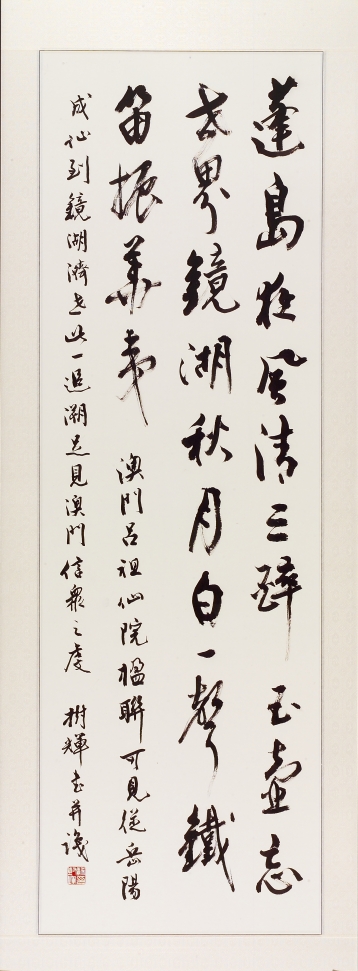 蓬島非風清三醉玉壺忘
世界鏡湖秋月白一聲鐵
笛振華夷 澳門呂祖仙院楹聯可見從岳陽
成仙到鏡湖濟世此一追溯足見澳門信眾之虔 樹輝書并識